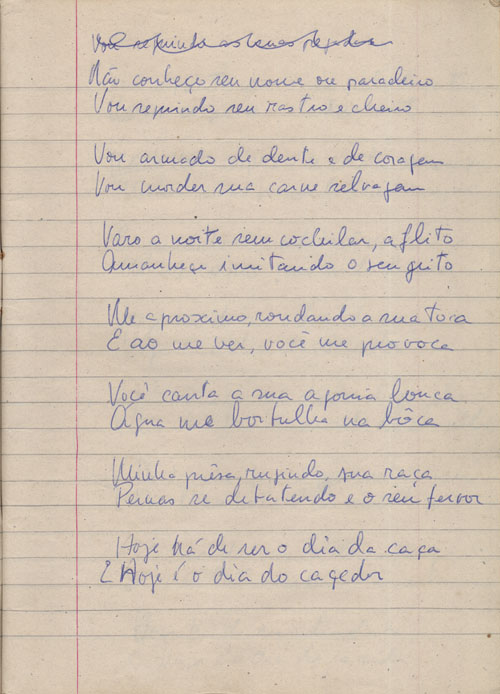 Não conheço seu nome ou paradeiro
Vou seguindo seu rastro e cheiro
Vou armado de dente e de coragem
Vou morder sua carne selvagem
Varo a noite sem cochilar, aflito
Amanheço imitando o seu grito
Me aproximo, rondando a sua toca
E ao me ver, você me provoca
Você canta a sua agonia louca
Agua me borbulha na bôca
Minha prêsa, rugindo, sua raça
Pernas se debatendo e o seu fervor
Hoje há de ser o dia da caça
Hoje é o dia do caçador